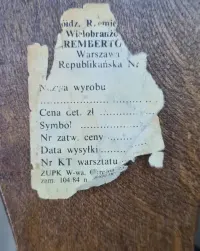 Wielobranżo
REMBERTO
Warszawa
Republikańska Nr
Nazwa wyrobu
....................
Cena det. zł ............
Symbol ..............
Nr zatw. ceny ..........
Data wysyłki ..........
Nr KT warsztatu ..........
ZUPK W-wa.
zam. 104/84 n.